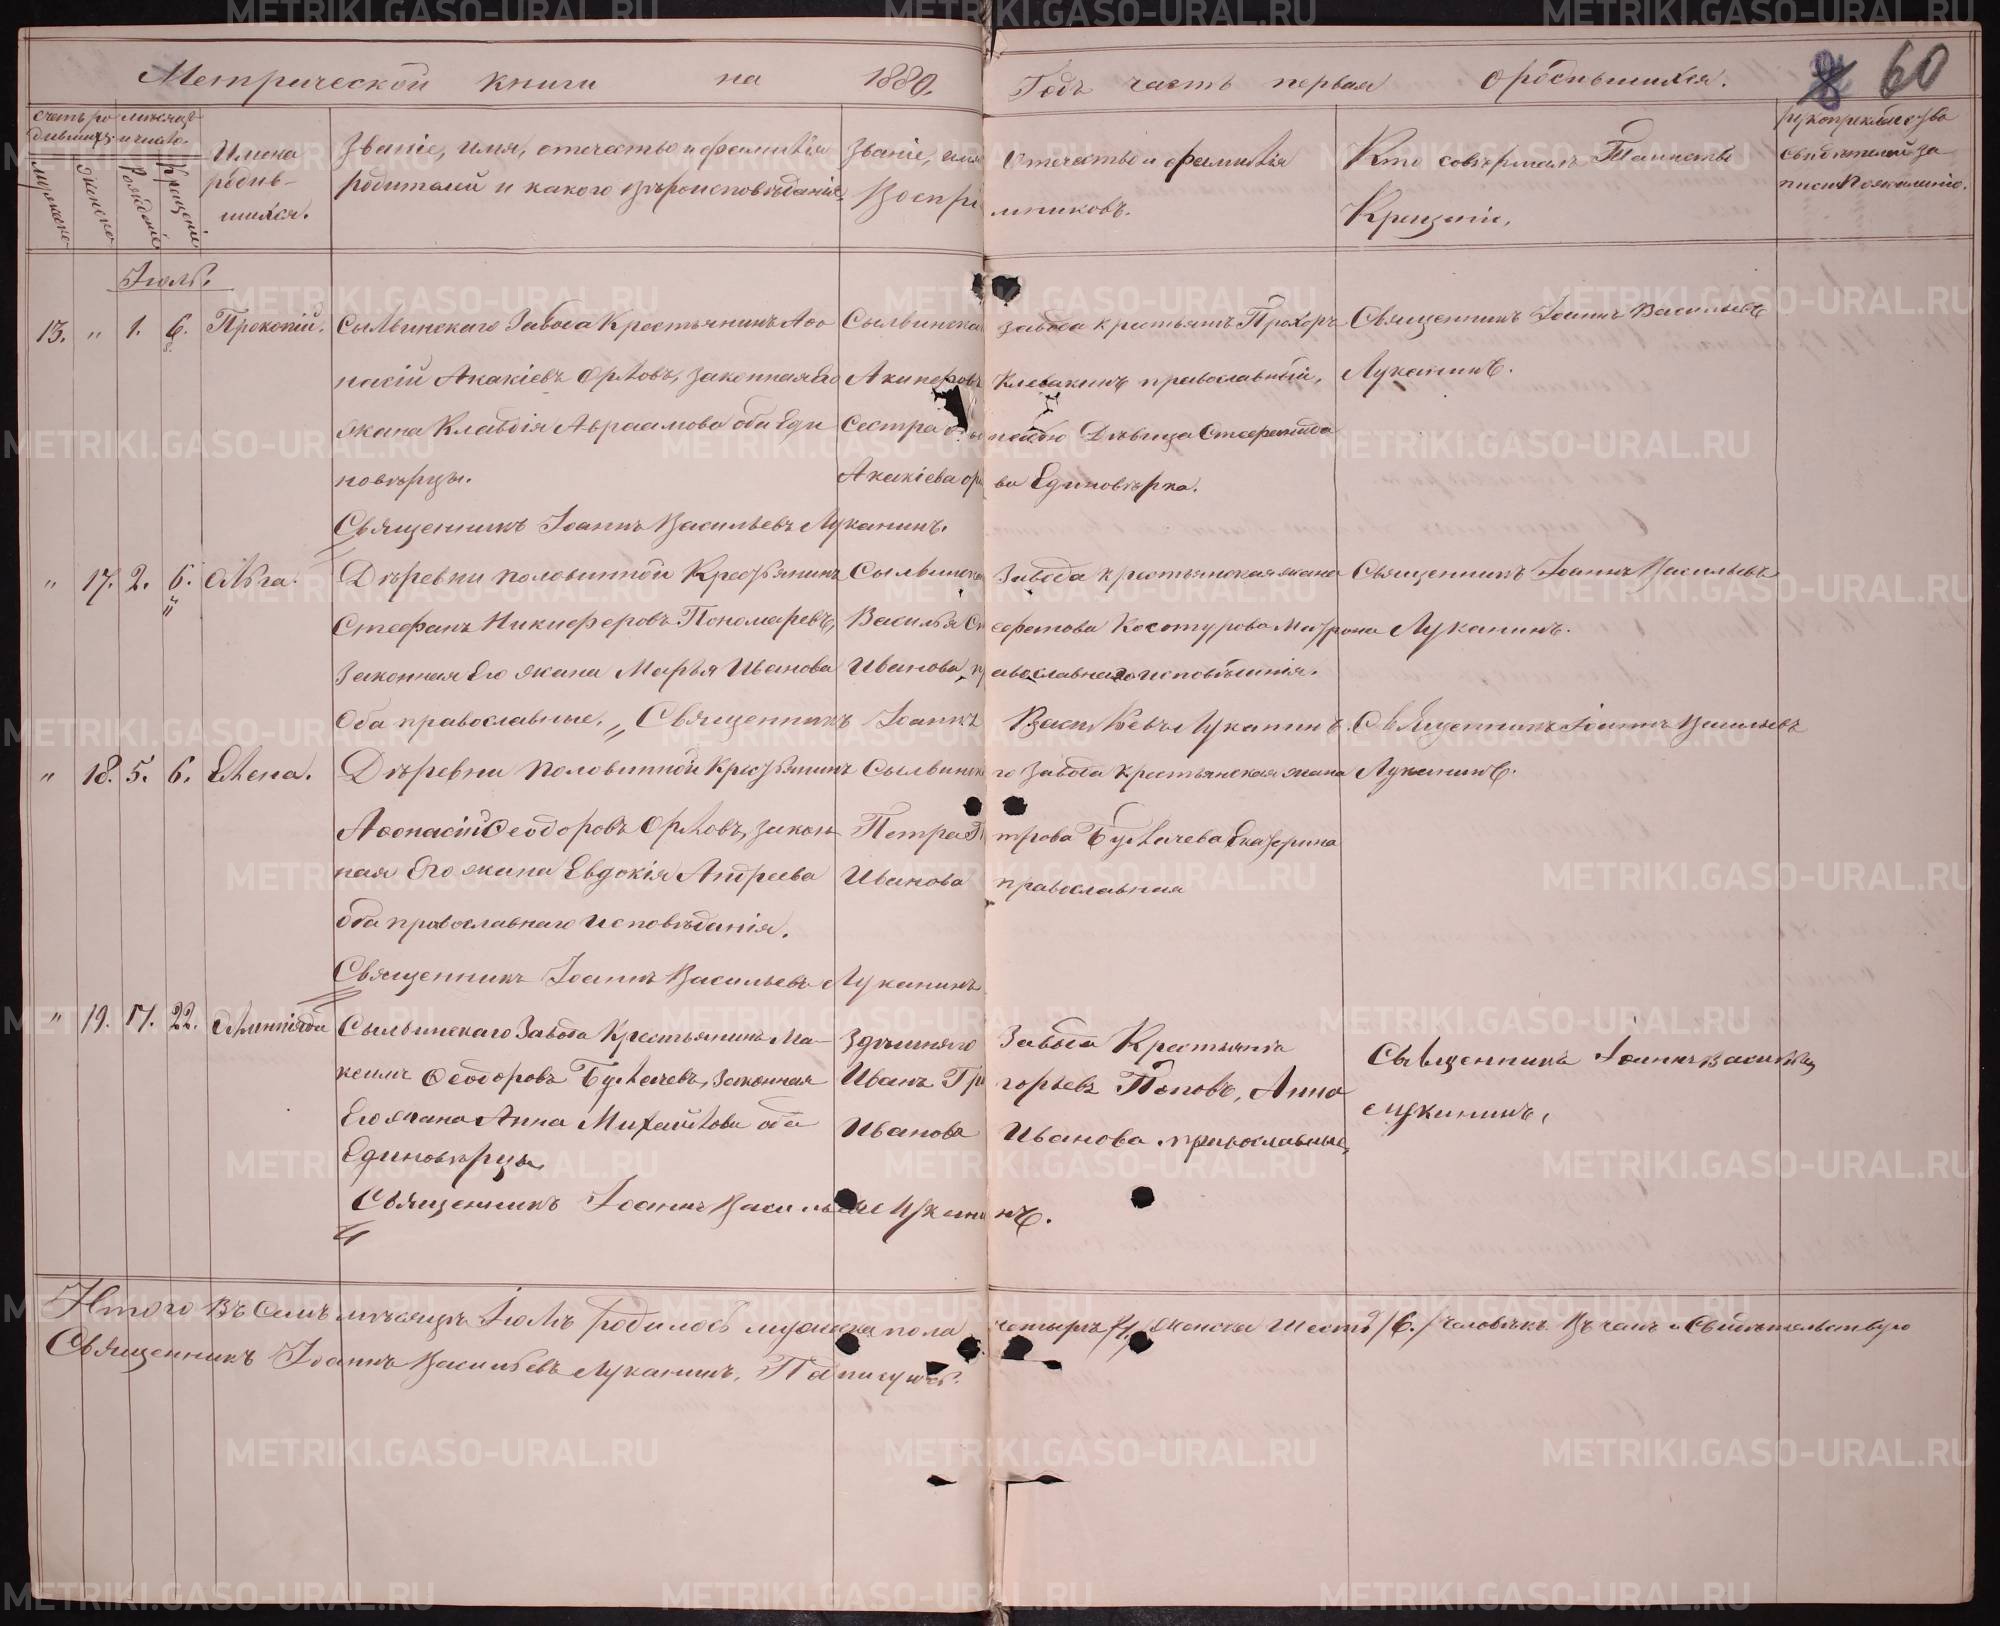 Метрической книги на 1880. Годъ часть первая о родившихся.
8 60
Счетъ родившихся: мужеска женска
месяцъ и число. Рожденіе Крещеніе
Имена родив-
шихся.
Званіе, имя, отечество и фамилія
родителей и какого вѣроисповѣданія
Званіе, имя отечество и фамилія
Воспріемниковъ.
Кто совершалъ Таинство
Крещенія.
рукоприкладство
свидѣтелей за
писи по желанію.
Іюль.
13. " 1. 6. Прокопій. Сылвинскаго Завода Крестьянинъ Аѳо Сылвинска завода крестьянинъ Прохоръ Священникъ Іоаннъ Васильевъ
насій Акакіевъ Орловъ, законная Его Клевакинъ православный, Луканинъ.
жена Клавдія Авраамова оба Еди Сестра Дѣвица Стефанида
новѣрцы. Акакіева Орлова Единовѣрка.
Священникъ Іоаннъ Васильевъ Луканинъ.
" 17. 2. 6. Ольга. Деревни Половинной Крестьянинъ Сылвинска Завода крестьянская жена Священникъ Іоаннъ Васильевъ
Стефанъ Никифоровъ Пономаревъ, Василья Косотурова Матрона Луканинъ.
Законная Его жена Марья Иванова Иванова православнаго исповѣданія.
Оба православные. Священникъ Іоаннъ Васильевъ Луканинъ. Священникъ Іоаннъ Васильевъ
" 18. 5. 6. Елена. Деревни Половинной Крестьянинъ Сылвинска го Завода крестьянская жена Луканинъ.
Аѳонасій Ѳеодоровъ Орловъ, закон Петра Петрова Булычева Екатерина
ная Его жена Евдокія Андреева Иванова православная
оба православнаго Исповѣданія.
Священникъ Іоаннъ Васильевъ Луканинъ
" 19. 17. 22. Олимпіяда Сылвинскаго Завода Крестьянинъ Ма- Здѣшняго Завода Крестьянинъ Священникъ Іоаннъ Васильевъ
ксимъ Ѳеодоровъ Булычевъ, Законная Иванъ Григорьевъ Поповъ, Анна Луканинъ.
Его жена Анна Михайлова оба Иванова Иванова православные,
Единовѣрцы
Священникъ Іоаннъ Васильевъ Луканинъ.
Итого въ семъ месяцѣ Іюлѣ родилось мужеска пола четыре /4/ женска шесть /6./ человѣкъ въ чемъ и свидѣтельствую
Священникъ Іоаннъ Васильевъ Луканинъ. Подписуюсь.
METRIKI.GASO-URAL.RU